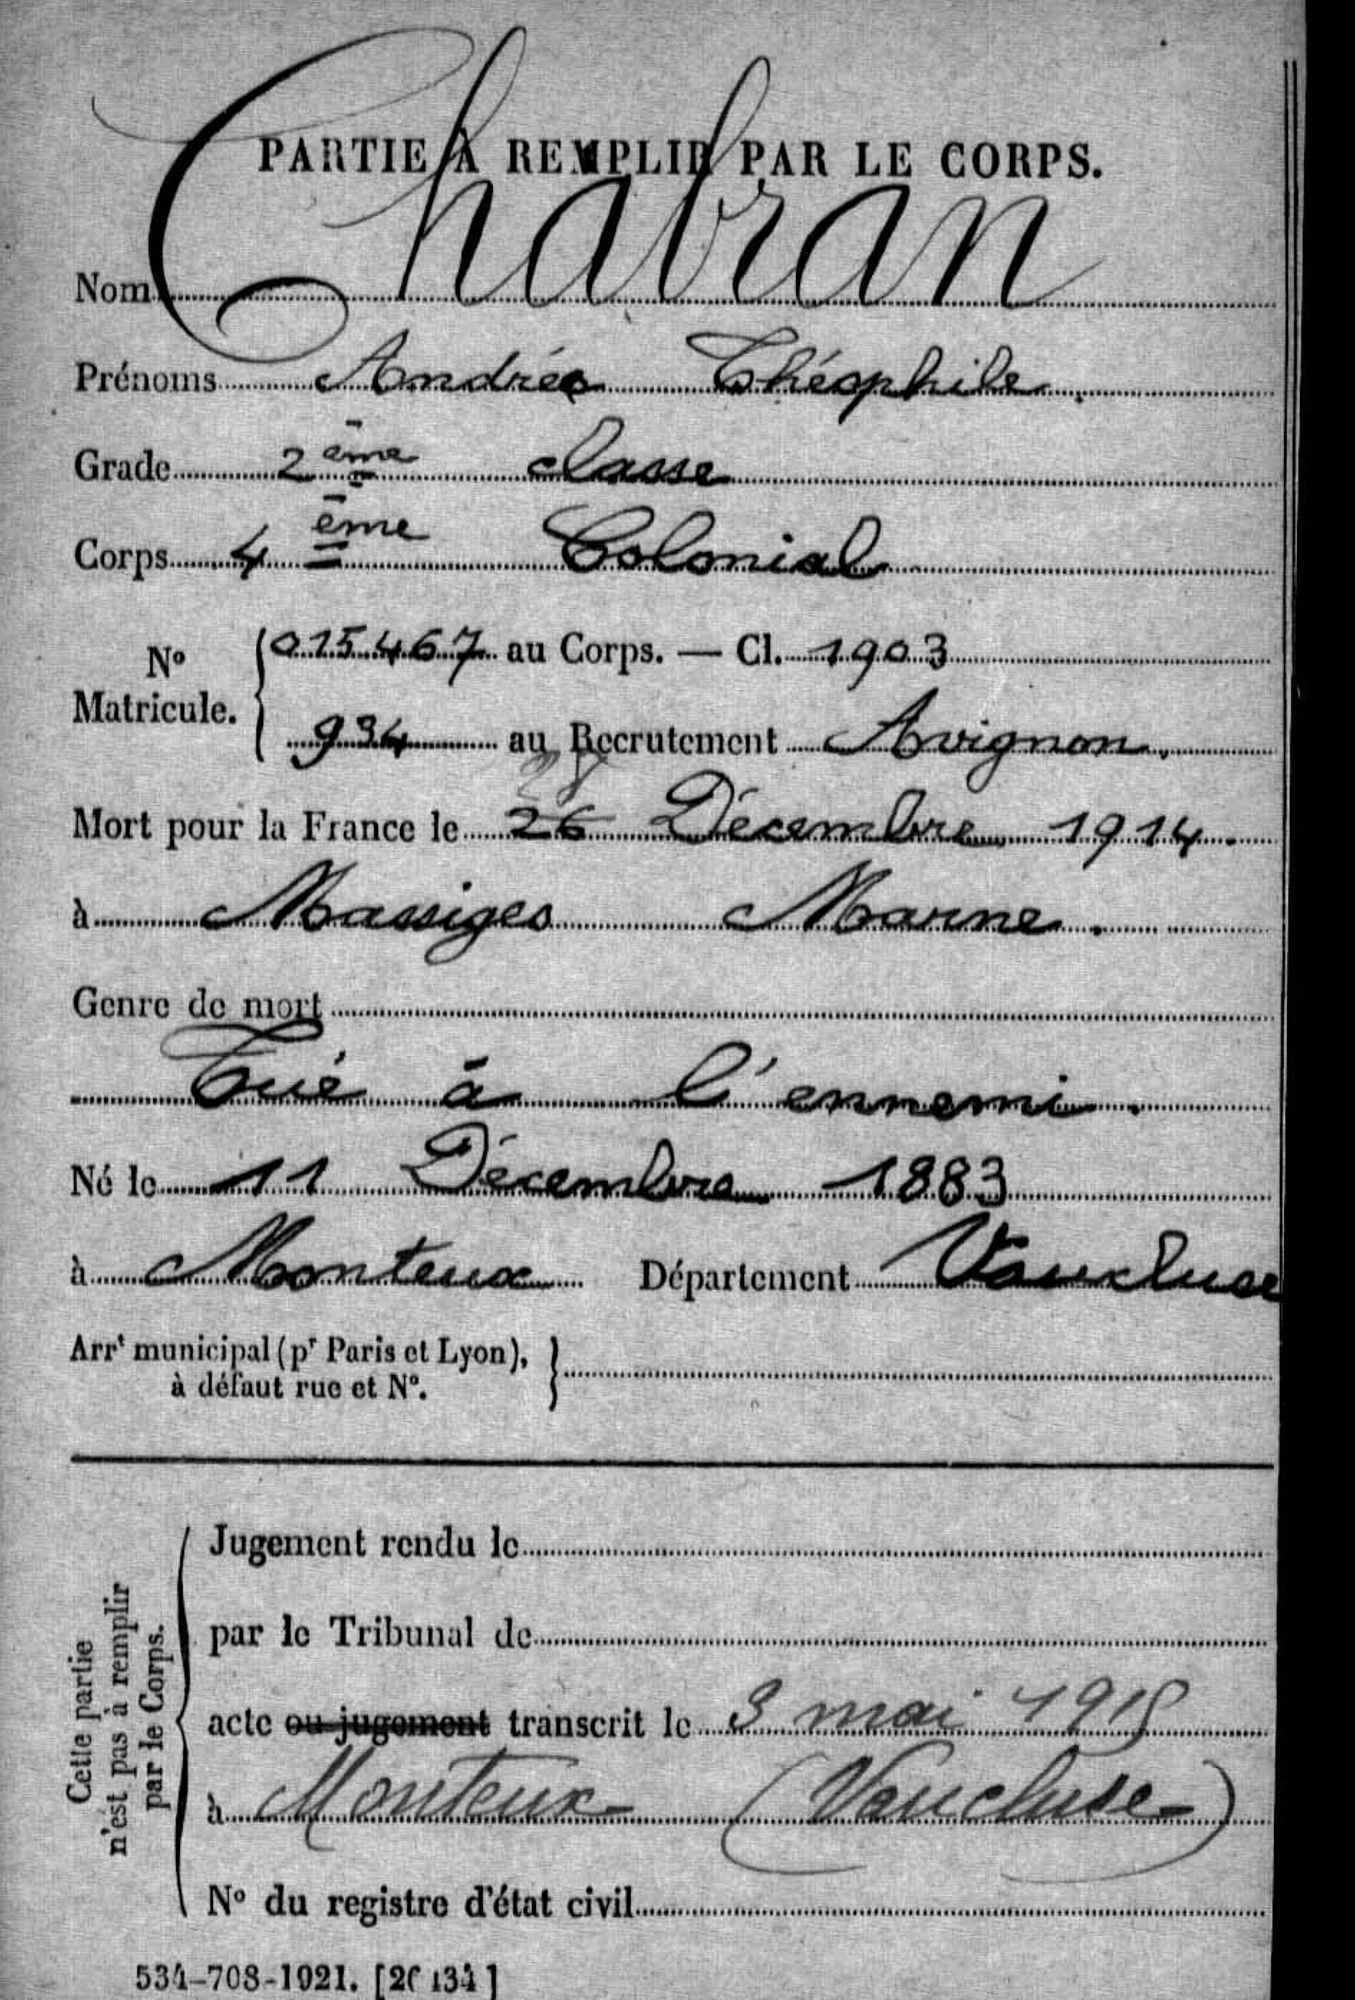 PARTIE À REMPLIR PAR LE CORPS.
Nom Chabran
Prénoms André Théophile.
Grade 2ème classe
Corps 4ème Colonial
N° Matricule. { 015467 au Corps. — Cl. 1903
934 au Recrutement Avignon.
28
Mort pour la France le 26 Décembre 1914.
à Massiges Marne.
Genre de mort
Tué à l'ennemi.
Né le 11 Décembre 1883
à Monteux Département Vaucluse
Arrt municipal (pr Paris et Lyon), à défaut rue et N°. }
Cette partie n'est pas à remplir par le Corps.
Jugement rendu le
par le Tribunal de
acte ou jugement transcrit le 3 mai 1915
à Monteux (Vaucluse)
N° du registre d'état civil
534-708-1921. [26434]